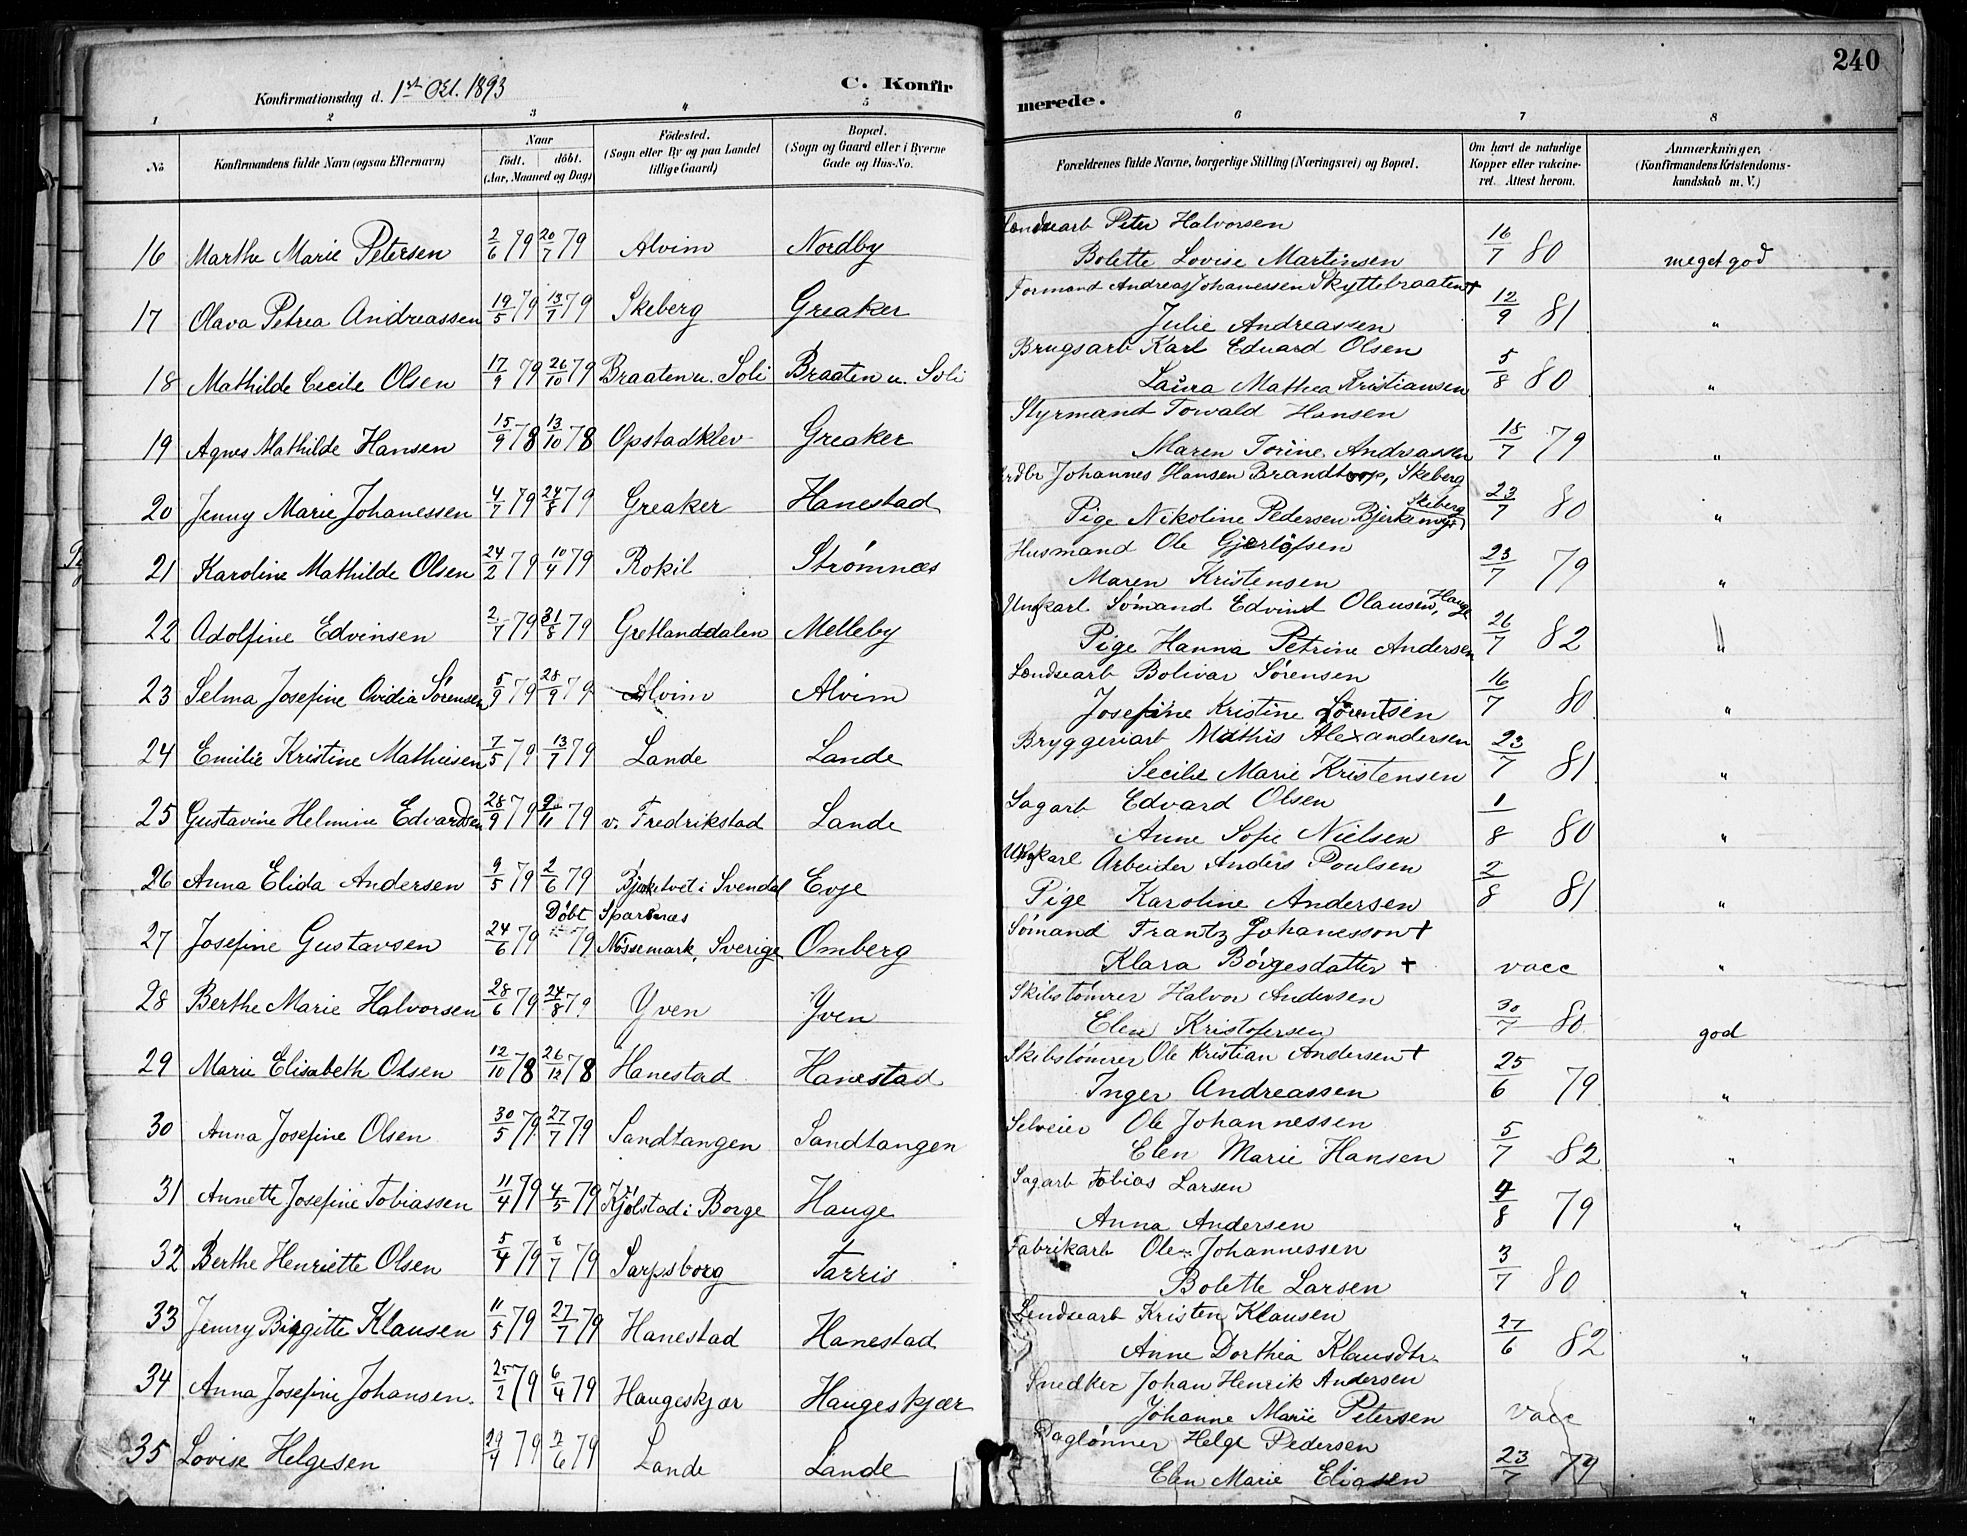 240
Konfirmationsdag d. 1ste Okt. 1893
C. Konfirmerede.
1 2 3 4 5 6 7 8
No
Konfirmandens fulde Navn (ogsaa Efternavn)
Naar født. døbt. (Aar, Maaned og Dag)
Fødested. (Sogn eller By og paa Landet tillige Gaard)
Bopæl. (Sogn og Gaard eller i Byerne Gade og Hus-No.
Forældrenes fulde Navne, borgerlige Stilling (Næringsvei) og Bopæl.
Om havt de naturlige Kopper eller vakcineret. Attest herom.
Anmærkninger, (Konfirmandens Kristendomskundskab m. V.)
16 Marthe Marie Petersen 2/6 79 20/7 79 Alvim Nordby Lændsearb Peter Halvorsen
Bolette Lovise Martinsen 16/7 80 meget god
17 Olava Petrea Andreassen 19/5 79 13/7 79 Skeberg Greaker Formand Andreas Johanessen Skyttebraaten +
Julie Andreassen 12/9 81 "
18 Mathilde Cecilie Olsen 17/9 79 26/10 79 Braaten u. Soli Braaten u. Soli Brugsarb Karl Eduard Olsen
Laura Mathea Kristiansen 5/8 80 "
19 Agnes Mathilde Hansen 15/9 78 13/10 78 Opstadklev Greaker Styrmand Torvald Hansen
Maren Torine Andreassen 18/7 79 "
20 Jenny Marie Johanessen 4/7 79 24/8 79 Greaker Hanestad Johannes Hansen Brandtorp, Skeberg
Pige Nikoline Pedersen Skeberg 23/7 80 "
21 Karoline Mathilde Olsen 24/2 79 10/4 79 Rokil Strømnæs Husmand Ole Gjerløfsen
Maren Kristensen 23/7 79 "
22 Adolfine Edvinsen 2/7 79 31/8 79 Gretlanddalen Melleby Ungkarl Sømand Edvind Olausen, Hauge
Pige Hanna Petrine Andersen 26/7 82 "
23 Selma Josefine Ovidia Sørensen 5/9 79 28/9 79 Alvim Alvim Lændsearb Bolivar Sørensen
Josefine Kristine Lorentsen 16/7 80 "
24 Emilie Kristine Mathiesen 7/5 79 13/7 79 Lande Lande Bryggeriarb Mathis Alexandersen
Secilie Marie Kristensen 23/7 81 "
25 Gustavine Helmine Edvardsen 28/9 79 9/11 79 v. Fredrikstad Lande Sagarb Edvard Olsen
Anne Sofie Nielsen 1/8 80 "
26 Anna Elida Andersen 9/5 79 2/6 79 i Svendal Evje Ungkarl Arbeider Anders Poulsen
Pige Karoline Andersen 2/8 81 "
27 Josefine Gustavsen 24/6 79 Døbt 79 Sparsnæs
Nössemark, Sverige Omberg Sømand Frantz Johanesson +
Klara Börgesdatter + vacc "
28 Berthe Marie Halvorsen 28/6 79 24/8 79 Yven Yven Skibstømrer Halvor Andersen
Elen Kristofersen 30/7 80 god
29 Marie Elisabeth Olsen 12/10 78 26/12 78 Hanestad Hanestad Skibstømrer Ole Kristian Andersen +
Inger Andreassen 25/6 79 "
30 Anna Josefine Olsen 30/5 79 27/7 79 Sandtangen Sandtangen Selveier Ole Johannessen
Elen Marie Hansen 5/7 82 "
31 Annette Josefine Tobiassen 11/4 79 4/5 79 Kjølstad i Borge Hauge Sagarb Tobias Larsen
Anna Andersen 4/8 79 "
32 Berthe Henriette Olsen 5/4 79 6/7 79 Sarpsborg Tarris Fabrikarb Ole Johannessen
Bolette Larsen 3/7 80 "
33 Jenny Birgitte Klausen 11/5 79 27/7 79 Hanestad Hanestad Lendsearb Kristen Klausen
Anne Dorthea Klausdtr. 27/6 82 "
34 Anna Josefine Johansen. 25/2 79 6/4 79 Haugeskjær Haugeskjær Snedker Johan Henrik Andersen
Johanne Marie Petersen vacc "
35 Lovise Helgesen 29/4 79 2/6 79 Lande Lande Daglønner Helge Pedersen
Elen Marie Eliasen 23/7 79